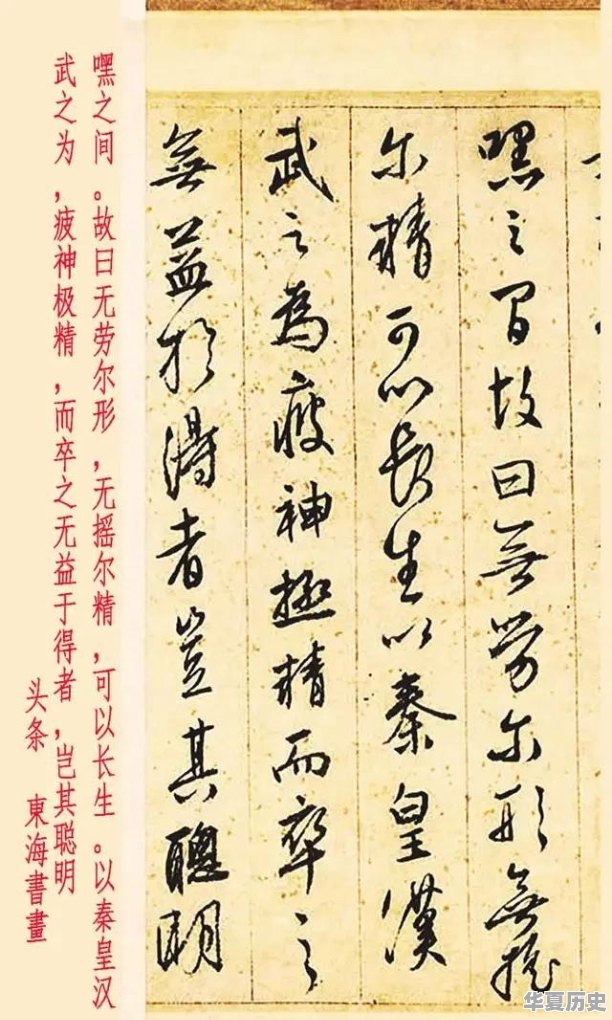 嘿之間故曰無勞尔形無摇
尔精可以長生以秦皇漢
武之為疲神極精而卒之
無益於得者豈其聰明
嘿之间。故曰无劳尔形，无摇尔精，可以长生。以秦皇汉
武之为，疲神极精，而卒之无益于得者，岂其聪明
头条 東海書畫
华夏历史